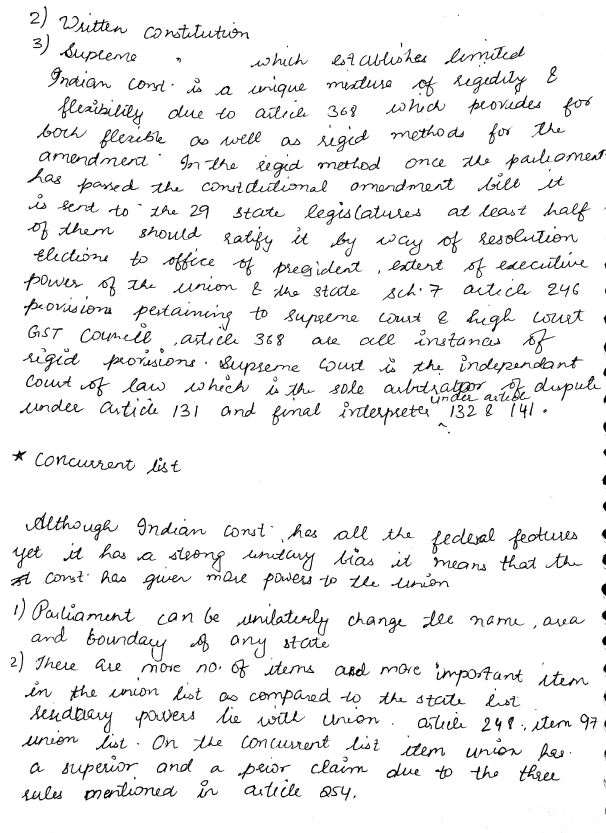 2) Written constitution
3) Supreme " which establishes limited
Indian const. is a unique mixture of regidity &
flexibility due to article 368 which provides for
both flexible as well as rigid methods for the
amendment. In the regid method once the parliament
has passed the constitutional amendment bill it
is sent to the 29 state legislatures at least half
of them should ratify it by way of resolution
elections to office of president, extent of executive
power of the union & the state sch. 7 article 246
provisions pertaining to supreme court & high court
GST Council, article 368 are all instances of
rigid provisions. Supreme court is the independant
court of law which is the sole arbitrator of dispute
under article 131 and final interpreter under article 132 & 141.
* concurrent list
Although Indian const. has all the federal features
yet it has a strong unitary bias it means that the
const. has given more powers to the union
1) Parliament can be unilaterly change the name, area
and boundary of any state
2) There are more no. of items and more important item
in the union list as compared to the state list
powers lie with union. article 248, item 97
union list. On the concurrent list item union has
a superior and a prior claim due to the three
rules mentioned in article 254.